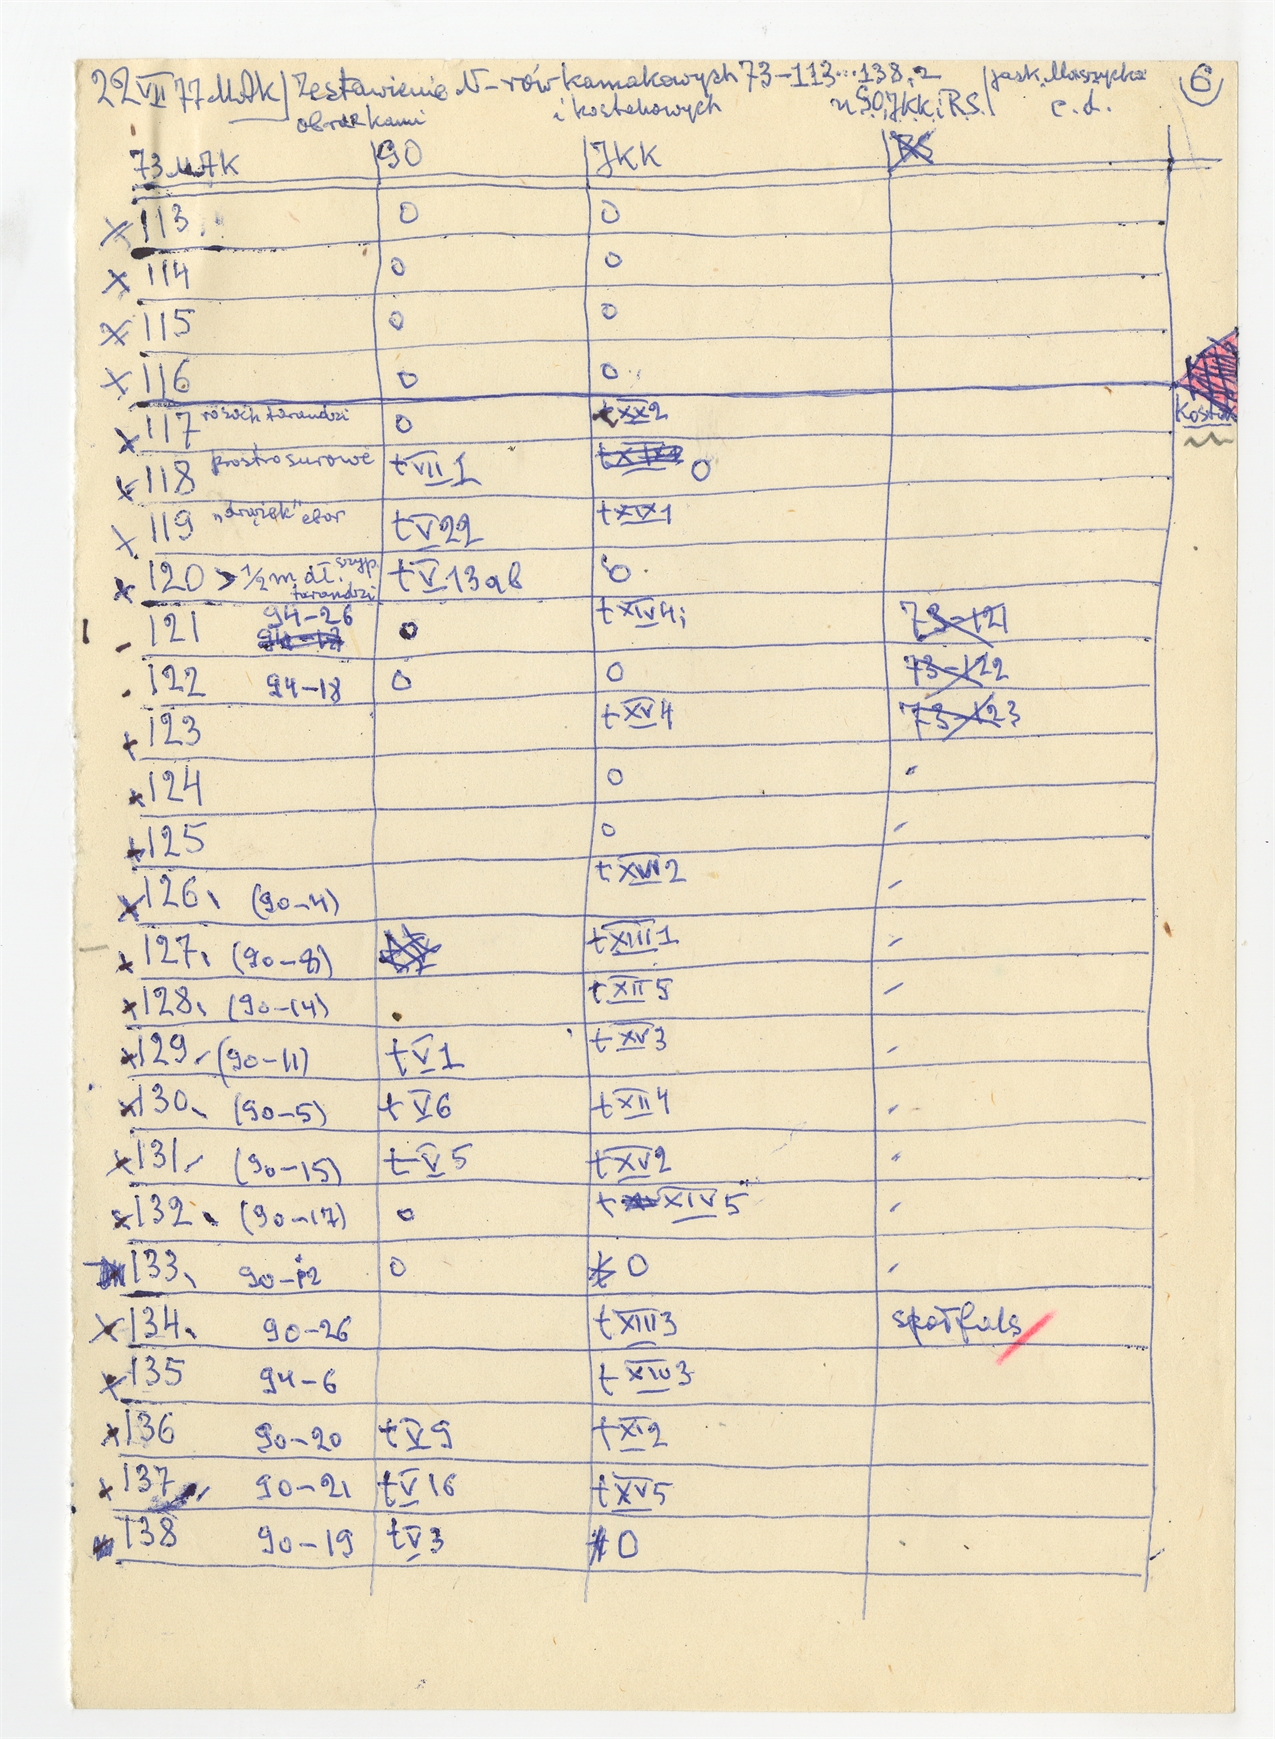 22 VII 77 MAK / Zestawienie N-rów kamakowych 73-113...138 z / Jask. Maszycka 6
obrazkami i kostkowych u S.O, JKK i R.S. c.d.
73 MAK SO JKK RS
x 113. 0 0
x 114 0 0
x 115 0 0
x 116 0 0
Kostki
x 117 rósoch tarandzi 0 t XX 2
x 118 prostrosurowe t VII 1 0
x 119 "drążek" ebor t V 22 t XIX 1
x 120 > 1/2 m. dł. szyp. tarandzi t V 13ab 0
- 121 94-26 0 t XIV 4; 73-121
122 94-18 0 0 73-122
x 123 t XV 4 73-123
x 124 0
x 125 0
x 126. (90-4) t XVII 2
x 127. (90-8) t XIII 1
x 128. (90-14) t XII 5
x 129. (90-11) t V 1 t XV 3
x 130. (90-5) t V 6 t XII 4
x 131. (90-15) t V 5 t XV 2
x 132. (90-17) 0 t XIV 5
133. 90-12 0 0
x 134. 90-26 t XIII 3
x 135 94-6 t XIV 3
x 136 90-20 t V 9 t XI 2
x 137 90-21 t V 16 t XV 5
138 90-19 t V 3 0